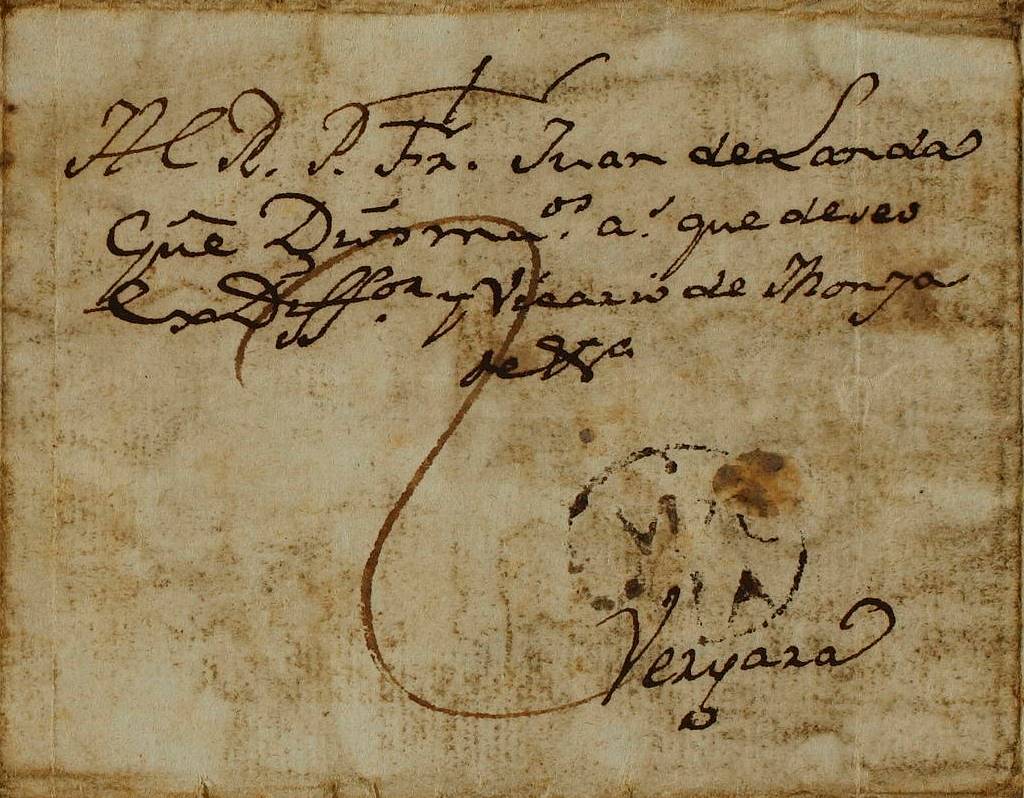 Al R. P. Fr. Juan de Landa
Gûe Dios m.os a.s que deseo
Ex Diff.or y Vicario de Monjas
de
Vergara